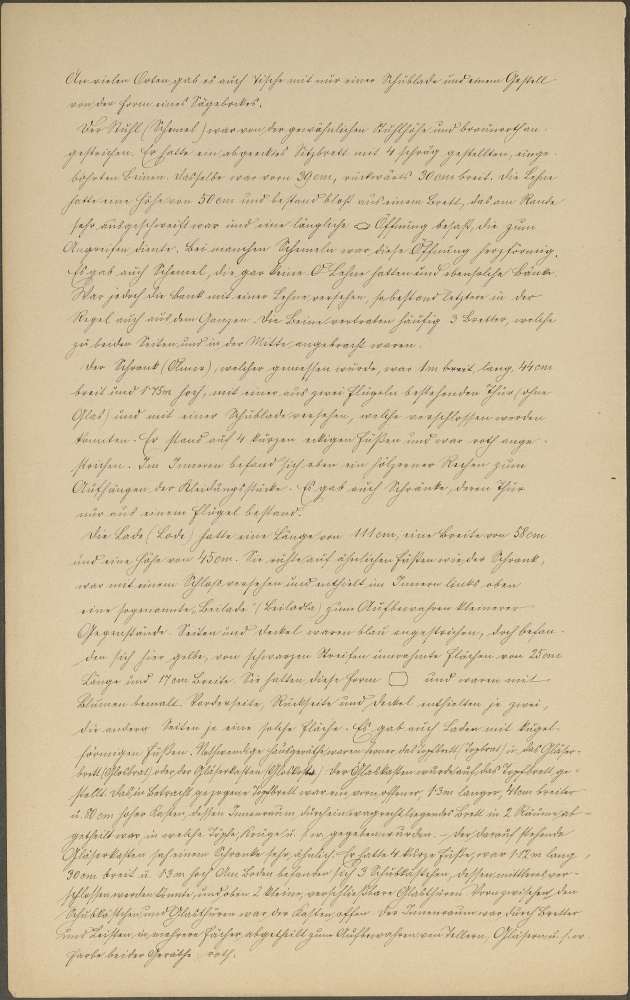 An vielen Orten gab es auch Tische mit nur einer Schublade und einem Gestell
von der Form eines Sägebockes.
Der Stuhl (Schemel) war von der gewöhnlichen Stuhlhöhe und braunroth an-
gestrichen. Er hatte ein abgeecktes Sitzbrett mit 4 schräg gestellten, einge-
bohrten Beinen. Dasselbe war vorn 39 cm, rückwärts 30 cm breit. Die Lehne
hatte eine Höhe von 50 cm und bestand bloß aus einem Brett, das am Rande
sehr ausgeschweift war und eine längliche Öffnung besaß, die zum
Angreifen diente. Bei manchen Schemeln war diese Öffnung herzförmig.
Es gab auch Schemel, die gar keine Lehne hatten und ebensolche Bänke.
War jedoch die Bank mit einer Lehne versehen, so bestand letztere in der
Regel auch aus dem Ganzen. Die Beine vertraten häufig 3 Bretter, welche
zu beiden Seiten und in der Mitte angebracht waren.
Der Schrank, welcher gemessen wurde, war 1 m lang, 44 cm
breit und 1·75 m hoch, mit einer aus zwei Flügeln bestehenden Thür (ohne
Glas) und mit einer Schublade versehen, welche verschlossen werden
konnten. Er stand auf 4 kurzen eckigen Füßen und war roth ange-
strichen. Im Inneren befand sich oben ein hölzerner Rechen zum
Aufhängen der Kleidungsstücke. Es gab auch Schränke, deren Thür
nur aus einem Flügel bestand.
Die Lade (Lode) hatte eine Länge von 111 cm, eine Breite von 58 cm
und eine Höhe von 45 cm. Sie ruhte auf ähnlichen Füßen wie der Schrank,
war mit einem Schloß versehen und enthielt im Innern links oben
eine sogenannte „Beilade“ (Beiladla) zum Aufbewahren kleinerer
Gegenstände. Seiten und Deckel waren blau angestrichen, doch befan-
den sich hier gelbe, von schwarzen Streifen umrahmte Flächen von 25 cm
Länge und 17 cm Breite. Sie hatten diese Form und waren mit
Blumen bemalt. Vorderseite, Rückseite und Deckel enthielten je zwei,
die andern Seiten je eine solche Fläche. Es gab auch Laden mit kugel-
förmigen Füßen. Nothwendige Hausgeräthe waren ferner das Topfbrett (Topbrat) u. das Gläser-
brett (Glosbrat) oder der Gläserkasten. Der Glaskasten wurde auf das Topfbrett ge-
stellt. Das in Betracht gezogene Topfbrett war ein vorn offener, 1·3 m langer, 41 cm breiter
u. 80 cm hoher Kasten, dessen Innenraum durch ein wagrecht liegendes Brett in 2 Räume ab-
getheilt war, in welche Töpfe, Krüge u. s. w. gegeben wurden. – Der darauf stehende
Gläserkasten sah einem Schranke sehr ähnlich. Er hatte 4 kurze Füße, war 1·12 m lang,
30 cm breit u. 1·3 m hoch. Am Boden befanden sich 3 Schubkästchen, dessen mittleres ver-
schlossen werden konnte, und oben 2 kleine, verschließbare Glasthüren. Vorn zwischen den
Schubkästchen und Glasthüren war der Kasten offen. Der Innenraum war durch Bretter
und Leisten in mehrere Fächer abgetheilt zum Aufbewahren von Tellern, Gläsern u. s. w.
Farbe beider Geräthe roth.